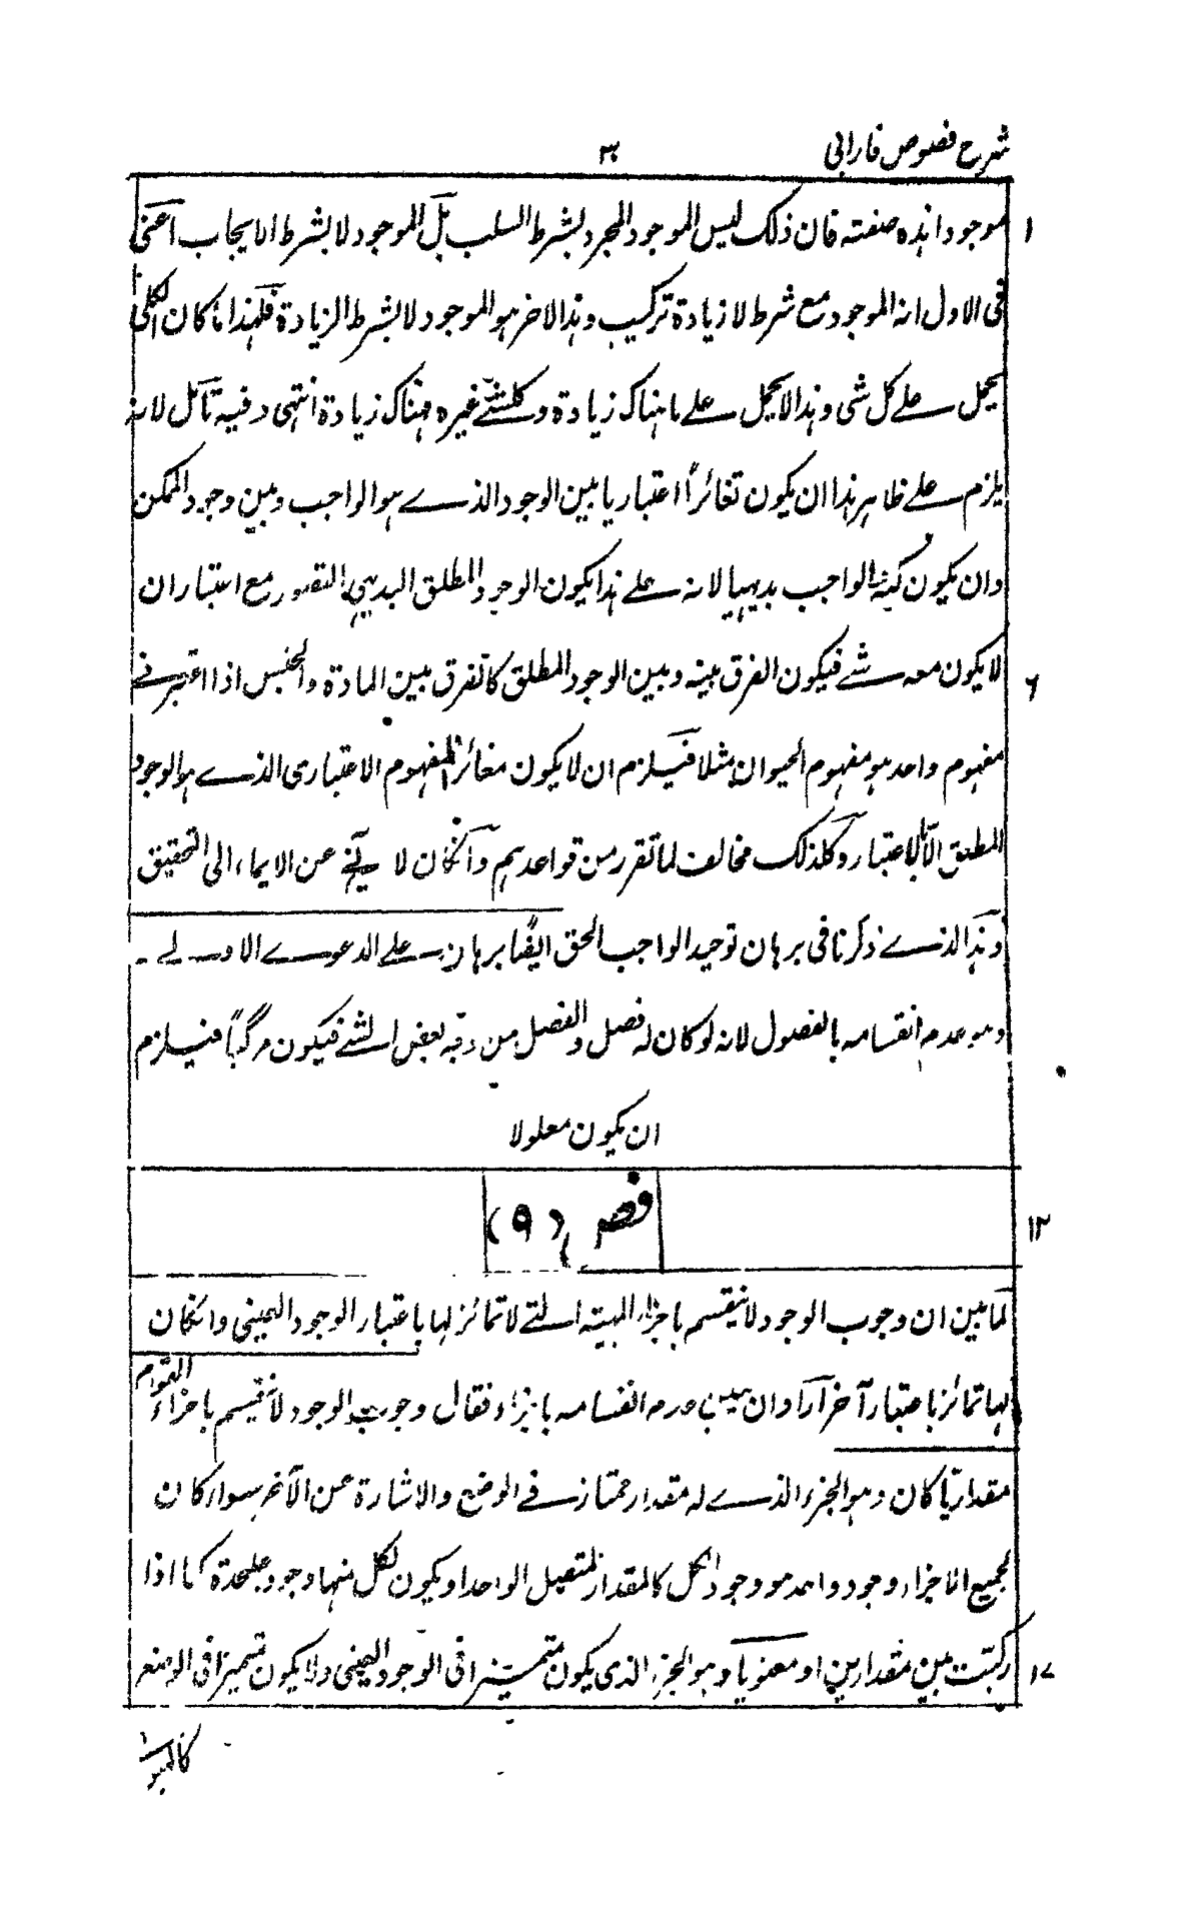 شرح فصوص فارابی
۳
۱ موجودا هذه صفته فان ذلك ليس الموجود المجرد بشرط السلب بل الموجود لا بشرط الايجاب اعنى
فى الاول انه الموجود مع شرط لا زيادة تركيب وهذا الاخر هو الموجود لا بشرط الزيادة فلهذا ما كان الكلى
يحمل على كل شى وهذا لا يحمل على ما هناك زيادة وكلشئ غيره فهناك زيادة انتهى وفيه تأمل لانه
يلزم على ظاهر هذا ان يكون تغائراً اعتباريا بين الوجود الذى هو الواجب وبين وجود الممكن
وان يكون كنه الواجب بديهيا لانه على هذا يكون الوجود المطلق البديهى التصور مع اعتبار ان
۶ لا يكون معه شئ فيكون الفرق بينه وبين الوجود المطلق كالفرق بين المادة والجنس اذا اعتبر فى
مفهوم واحد هو مفهوم الحيوان مثلا فيلزم ان لا يكون مغائر المفهوم الاعتبارى الذى هو الوجود
المطلق الا بالاعتبار وكل ذلك مخالف لما تقرر من قواعدهم وانكان لا يخ عن الايماء الى التحقيق
وهذا الذى ذكرنا فى برهان توحيد الواجب الحق ايضًا برهان على الدعوى الاولى -
وهو عدم انقسامه بالفصول لانه لو كان له فصل والفصل من بعض الشئ فيكون مركبًا فيلزم
ان يكون معلولا
۱۲ فص (۹)
لما بين ان وجوب الوجود لا ينقسم باجزاء المهية التى لا تمائز لها باعتبار الوجود العينى وانكان
لها تمائز باعتبار آخر اراد ان يبين عدم انقسامه باجزاء فقال وجوب الوجود لا ينقسم باجزاء القوام
مقداريا كان وهو الجزء الذى له مقدار ممتاز فى الوضع والاشارة عن الآخر سواء كان
لجميع الاجزاء وجود واحد هو وجود الكل كالمقدار المتصل الواحد او يكون لكل منها وجود علىحدة كما اذا
۱۷ ركبت من مقدارين او معنويا وهو الجزء الذى يكون متميزا فى الوجود العينى ولا يكون متميزا فى الوضع